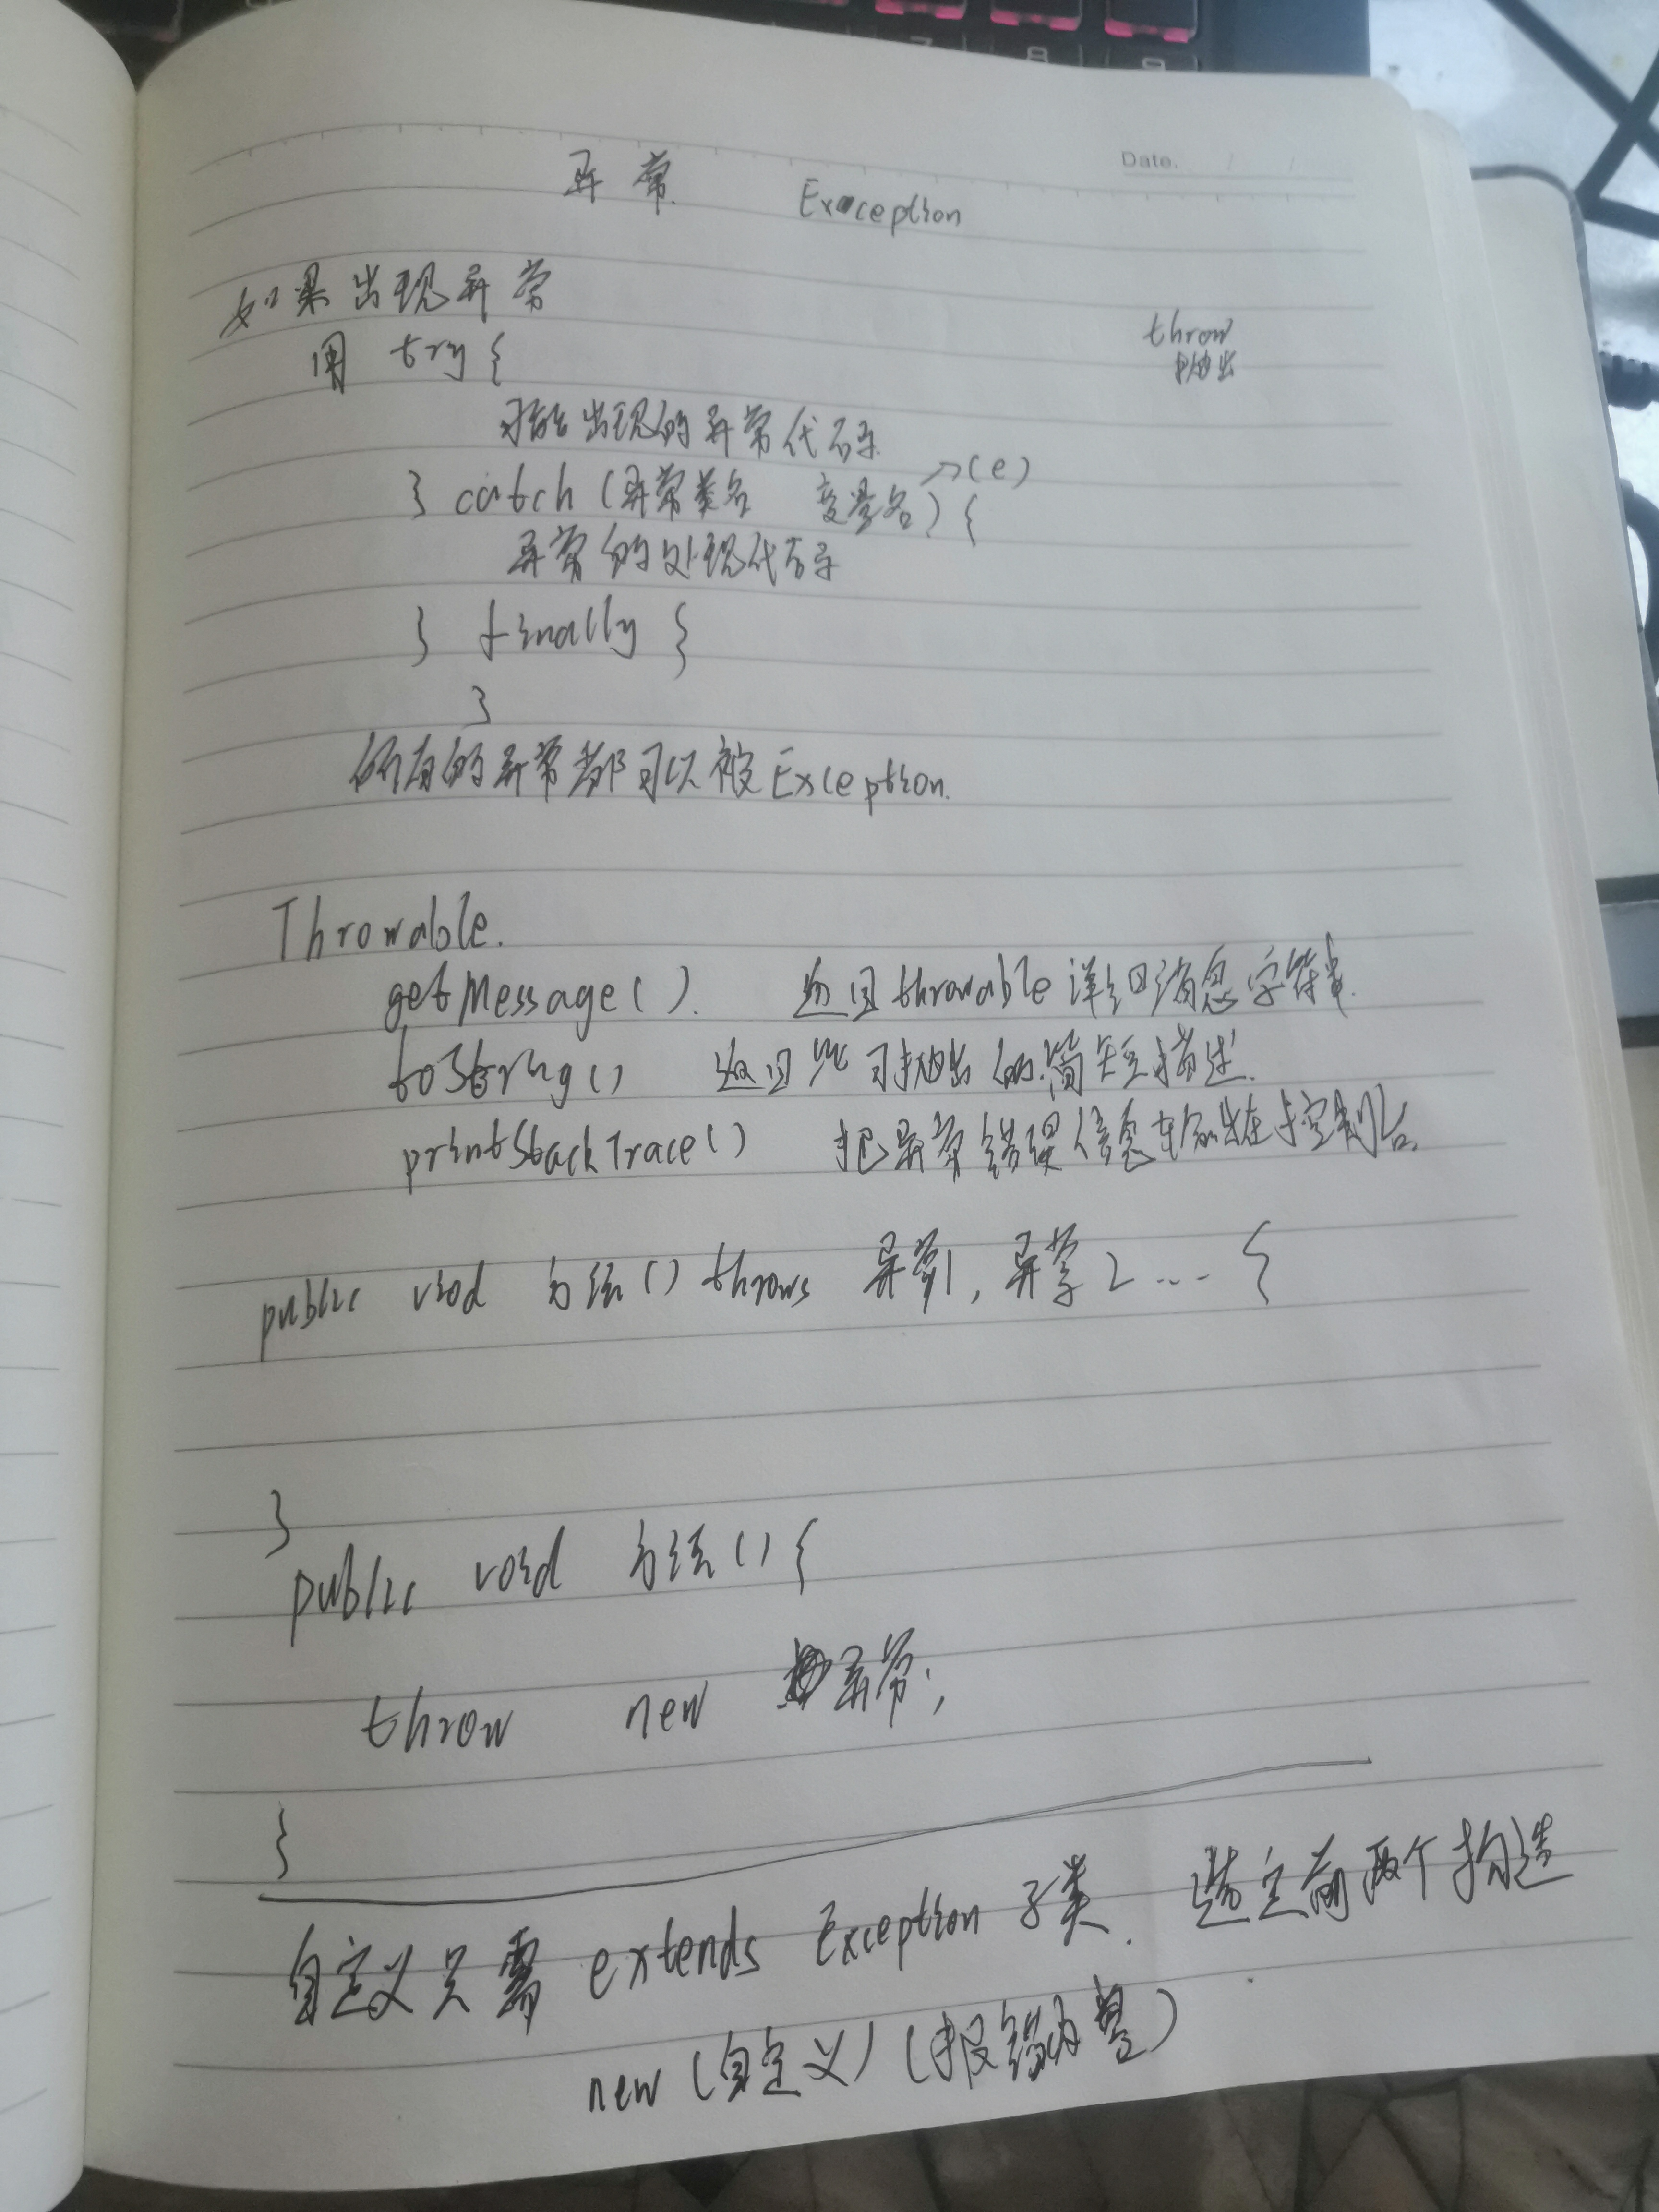 Date. / /
异常 Exception
如果出现异常
throw
抛出
用 try {
可能出现的异常代码
} catch (异常类名 变量名) { →(e)
异常的处理代码
} finally {
}
所有的异常都可以被Exception.
Throwable.
getMessage(). 返回throwable详细消息字符串.
toString() 返回此可抛出的简短描述.
printStackTrace() 把异常错误信息输出在控制台.
public void 方法() throws 异常1, 异常2 ... {
}
public void 方法() {
throw new 异常;
}
自定义只需 extends Exception 子类. 选定前两个构造
new (自定义) (报错内容)